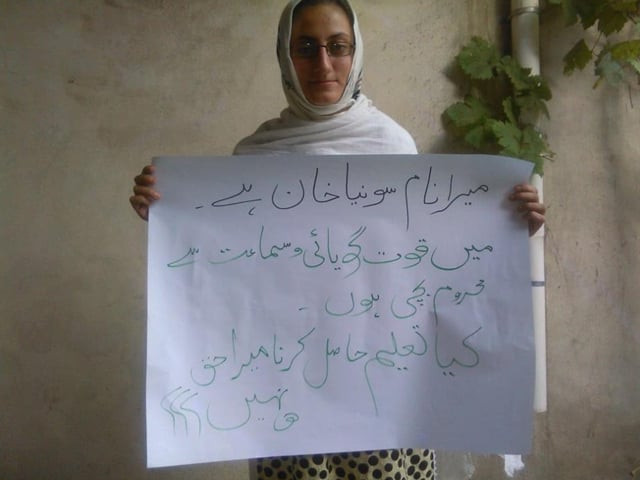 میرا نام سونیا خان ہے۔
میں قوت گویائی و سماعت سے
محروم بچی ہوں ۔
کیا تعلیم حاصل کرنا میرا حق
نہیں ؟؟؟